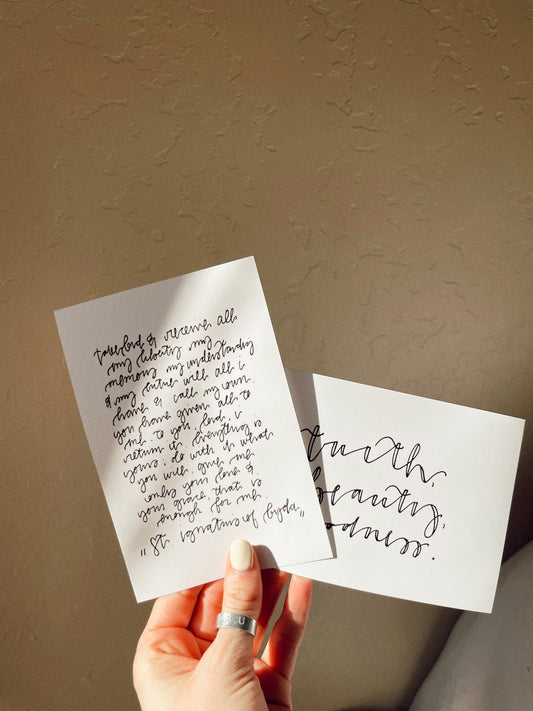 take lord & receive all
my liberty my
memory my understanding
& my entire will all i
have & call my own.
you have given all to
me. to you, lord, i
return it. everything is
yours, do with it what
you will. give me
only your love &
your grace. that is
enough for me.
"St. ignatius of loyola"
truth,
beauty,
oodness.
S U